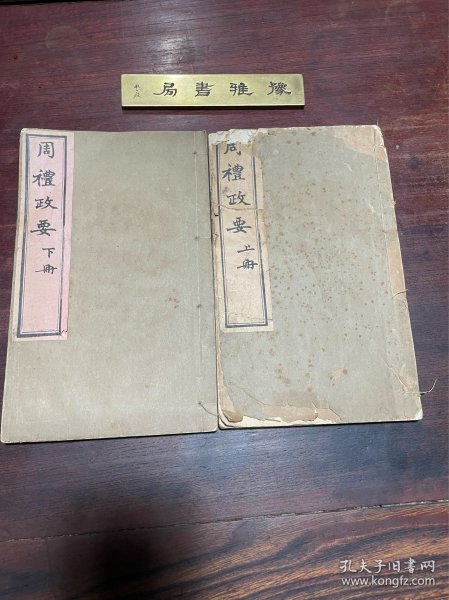 豫雅書局
周禮政要 下冊
周禮政要 上冊
孔夫子旧书网
www.kongfz.com